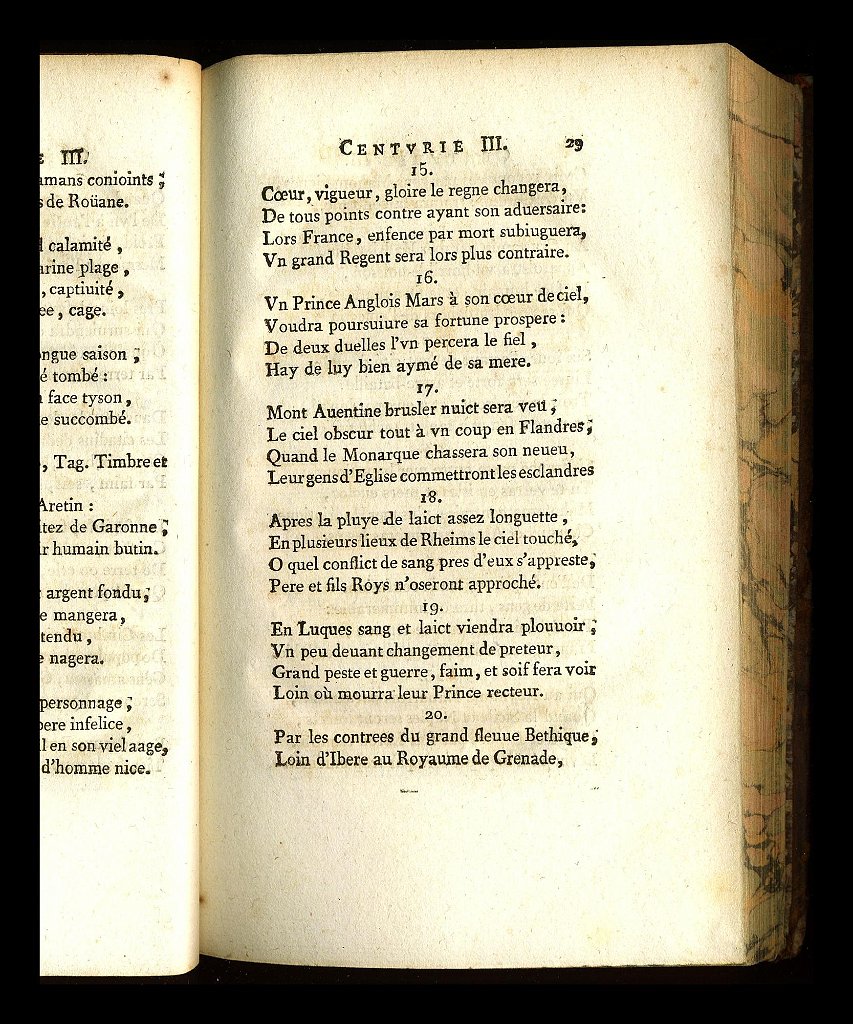 E III.
amans conioints ;
s de Roüane.
calamité ,
rine plage ,
, captiuité ,
ee , cage.
ongue saison ;
é tombé :
face tyson ,
e succombé.
, Tag. Timbre et
Aretin :
itez de Garonne ;
r humain butin.
argent fondu ;
e mangera ,
tendu ,
e nagera.
personnage ;
pere infelice ,
l en son viel aage,
d'homme nice.
CENTVRIE III. 29
15.
Cœur, vigueur, gloire le regne changera,
De tous points contre ayant son aduersaire:
Lors France, enfence par mort subiuguera,
Vn grand Regent sera lors plus contraire.
16.
Vn Prince Anglois Mars à son cœur de ciel,
Voudra poursuiure sa fortune prospere :
De deux duelles l'vn percera le fiel ,
Hay de luy bien aymé de sa mere.
17.
Mont Auentine brusler nuict sera veu ;
Le ciel obscur tout à vn coup en Flandres ;
Quand le Monarque chassera son neueu,
Leurgens d'Eglise commettront les esclandres
18.
Apres la pluye de laict assez longuette ,
En plusieurs lieux de Rheims le ciel touché,
O quel conflict de sang pres d'eux s'appreste,
Pere et fils Roys n'oseront approché.
19.
En Luques sang et laict viendra plouuoir ;
Vn peu deuant changement de preteur,
Grand peste et guerre, faim, et soif fera voir
Loin où mourra leur Prince recteur.
20.
Par les contrees du grand fleuue Bethique,
Loin d'Ibere au Royaume de Grenade,